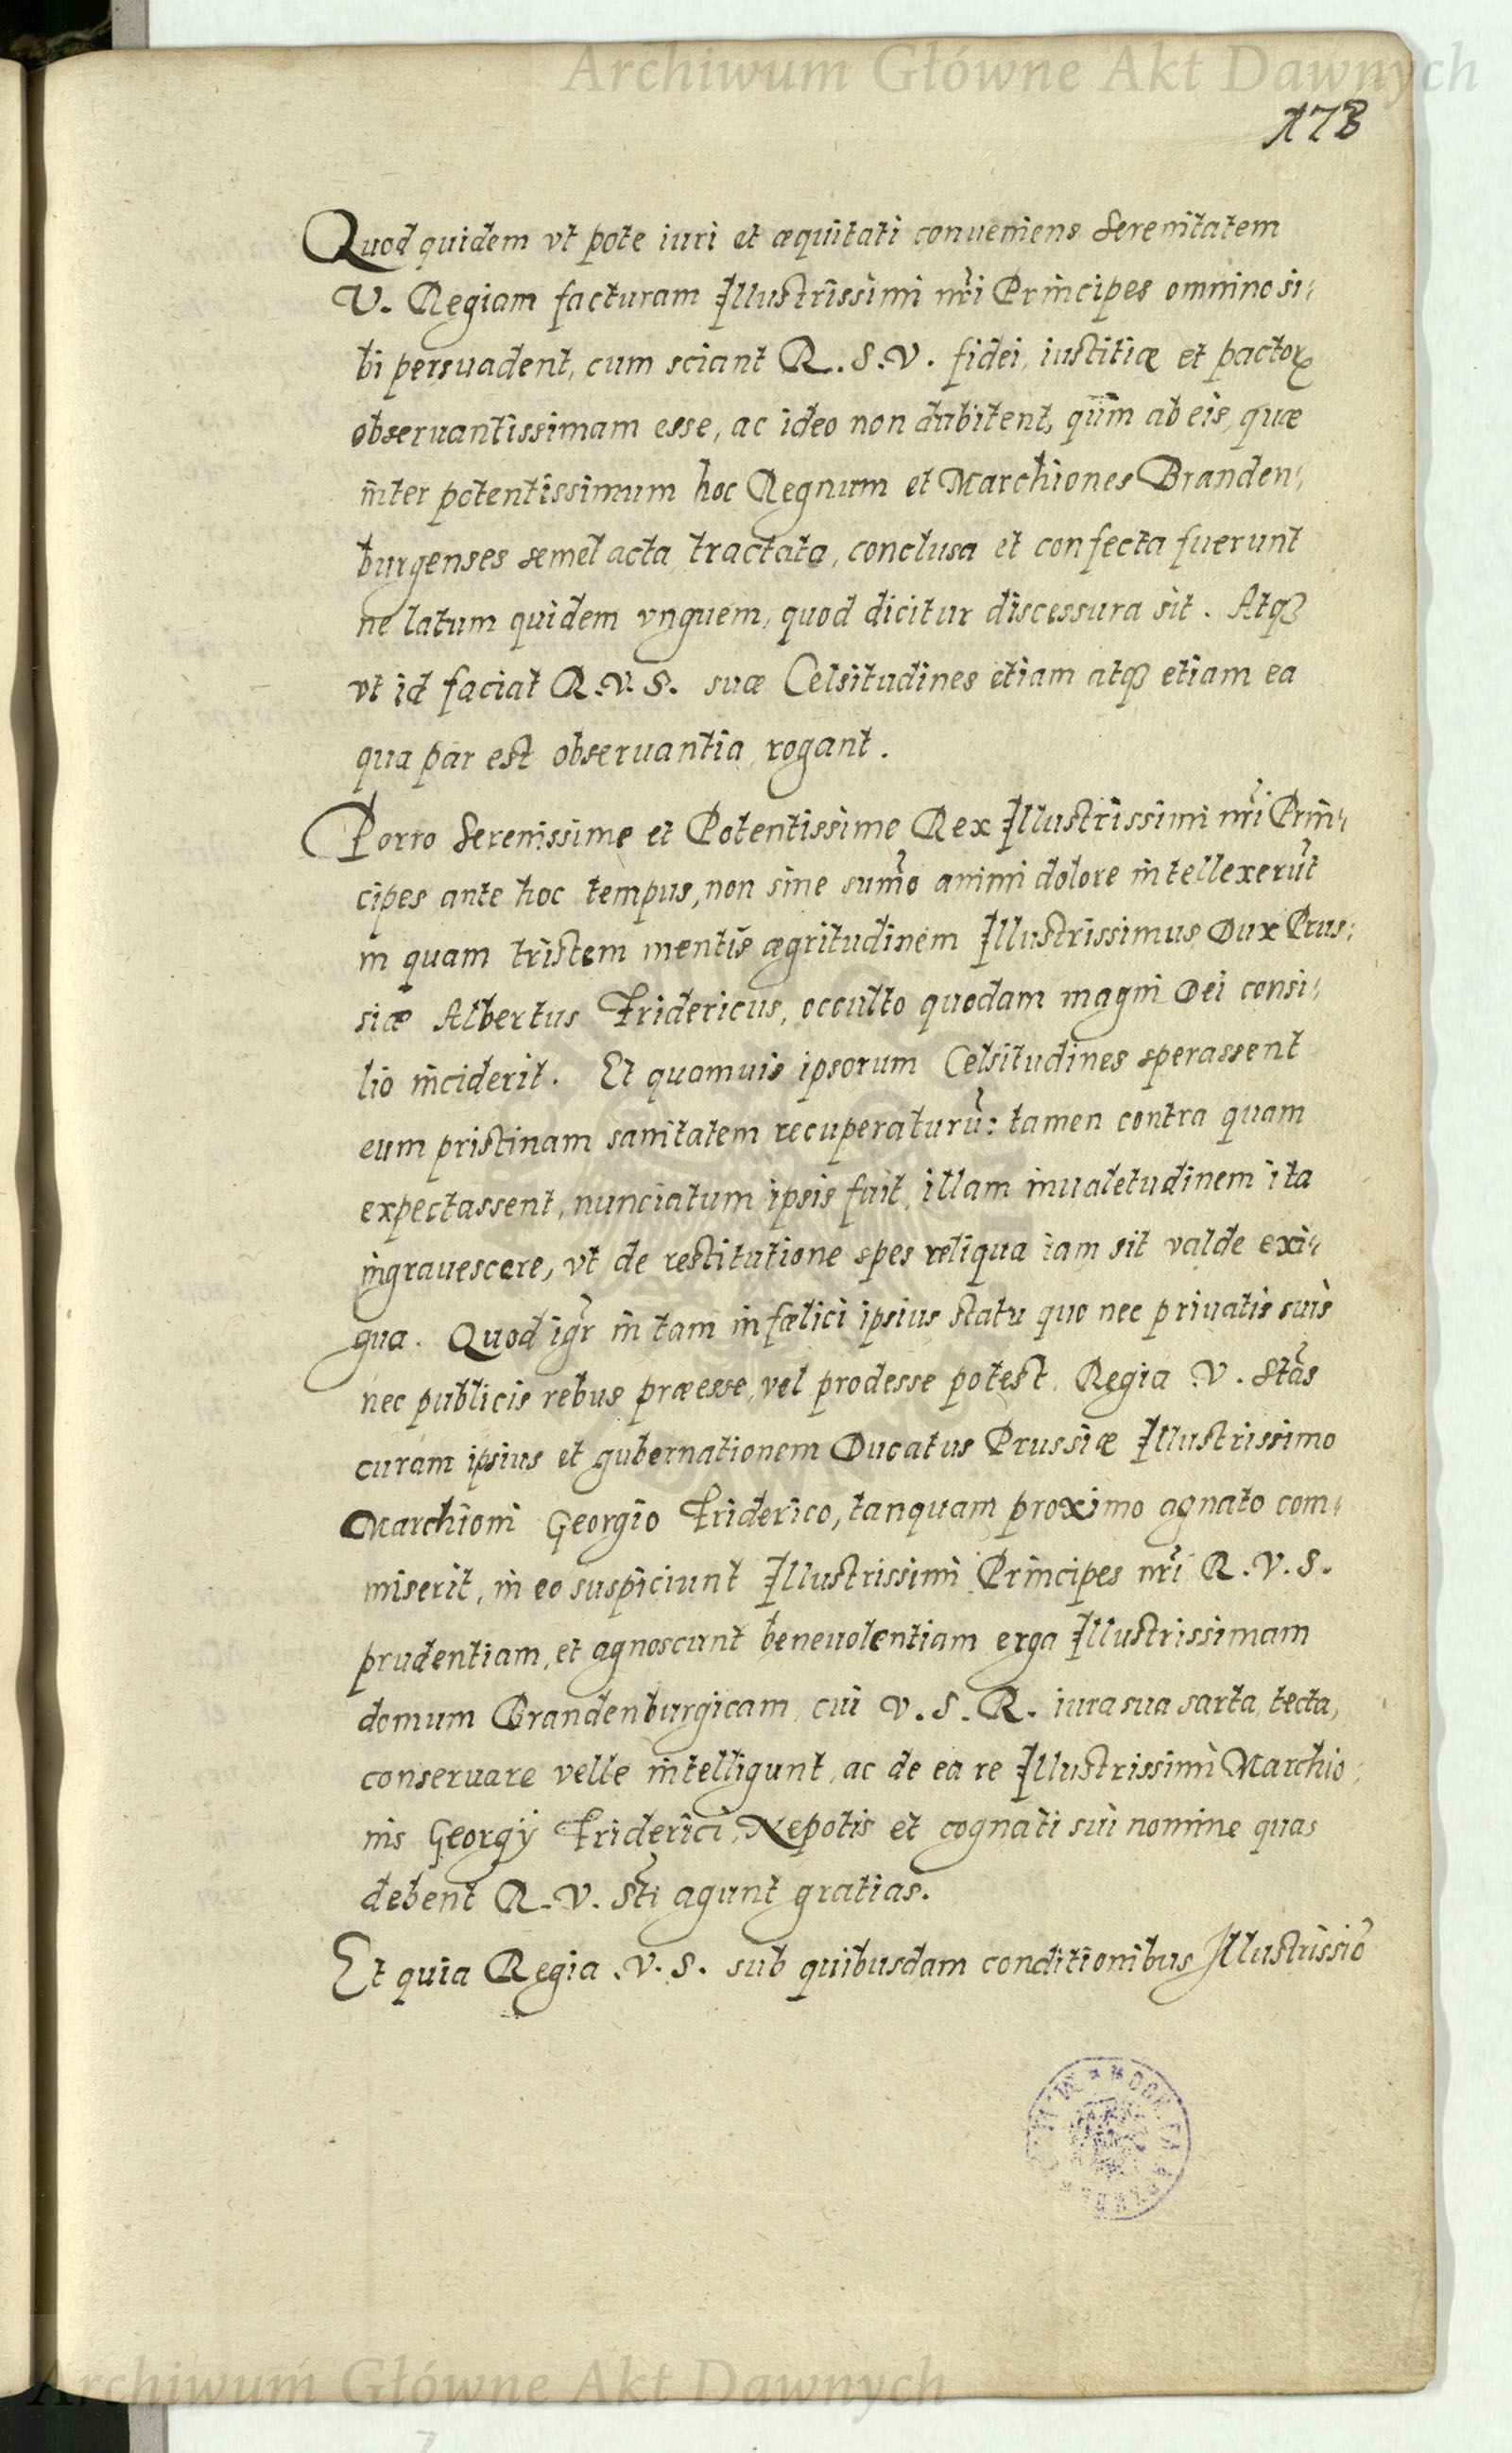 Archiwum Główne Akt Dawnych
173
Quod quidem vt pote iuri et æquitati conueniens Serenitatem
V. Regiam facturam Illustrissimi nri Principes omnino si-
bi persuadent, cum sciant R. S. V. fidei, iustitiæ et pactorꝝ
obseruantissimam esse, ac ideo non dubitent, quin ab eis, quæ
inter potentissimum hoc Regnum et Marchiones Branden-
burgenses semel acta, tractata, conclusa et confecta fuerunt
ne latum quidem vnguem, quod dicitur discessura sit. Atqꝫ
vt id faciat R. V. S. suæ Celsitudines etiam atqꝫ etiam ea
qua par est obseruantia, rogant.
Porro Serenissime et Potentissime Rex Illustrissimi nri Prin-
cipes ante hoc tempus, non sine sumo animi dolore intellexerut
in quam tristem mentis ægritudinem Illustrissimus Dux Prus-
siæ Albertus Fridericus, occulto quodam magni Dei consi-
lio inciderit. Et quamuis ipsorum Celsitudines sperassent
eum pristinam sanitatem recuperaturū: tamen contra quam
expectassent, nunciatum ipsis fuit, illam inualetudinem ita
ingrauescere, vt de restitutione spes reliqua iam sit valde exi-
gua. Quod igr in tam infœlici ipsius statu quo nec priuatis suis
nec publicis rebus præesse, vel prodesse potest, Regia V. Stas
curam ipsius et gubernationem Ducatus Prussiæ Illustrissimo
Marchioni Georgio Friderico, tanquam proximo agnato com-
miserit, in eo suspiciunt Illustrissimi Principes nri R. V. S.
prudentiam, et agnoscunt beneuolentiam erga Illustrissimam
domum Brandenburgicam, cui V. S. R. iura sua sarta, tecta,
conseruare velle intelligunt, ac de ea re Illustrissimi Marchio-
nis Georgÿ Friderici, Nepotis et cognati sui nomine quas
debent R. V. Sti agunt gratias.
Et quia Regia V. S. sub quibusdam conditionibus Illustrissio
Archiwum Główne Akt Dawnych